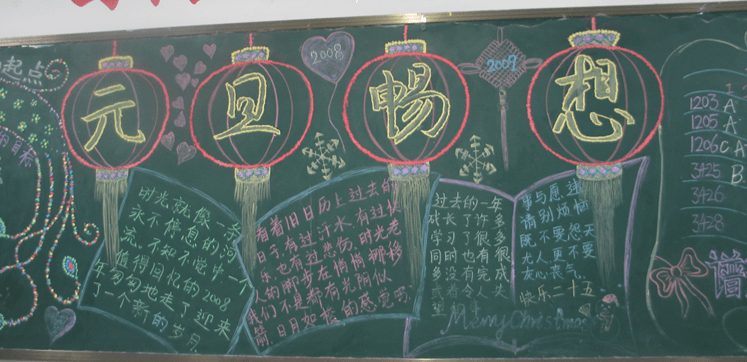 起点
元旦畅想
2008
2009
时光就像一条
永不停息的河
流,不知不觉中,一个
值得回忆的2008
年匆匆地走了迎来
了一个新的岁月
看着旧日历上过去的
日子,有过汗水,有过快
乐,也有过悲伤,时光老
人的脚步在悄悄挪移
我们不是都有光阴似
箭,日月如梭的感觉吗?
过去的一年
成长了许多
学习了很多
同时也有很
多没有完成
或者令人失
望
事与愿违
请别烦恼
既不要怨天
尤人更不要
灰心丧气。
快乐二十五
Merry Christmas
1203 A
1205 A
1206 C A
3425 B
3426
3428